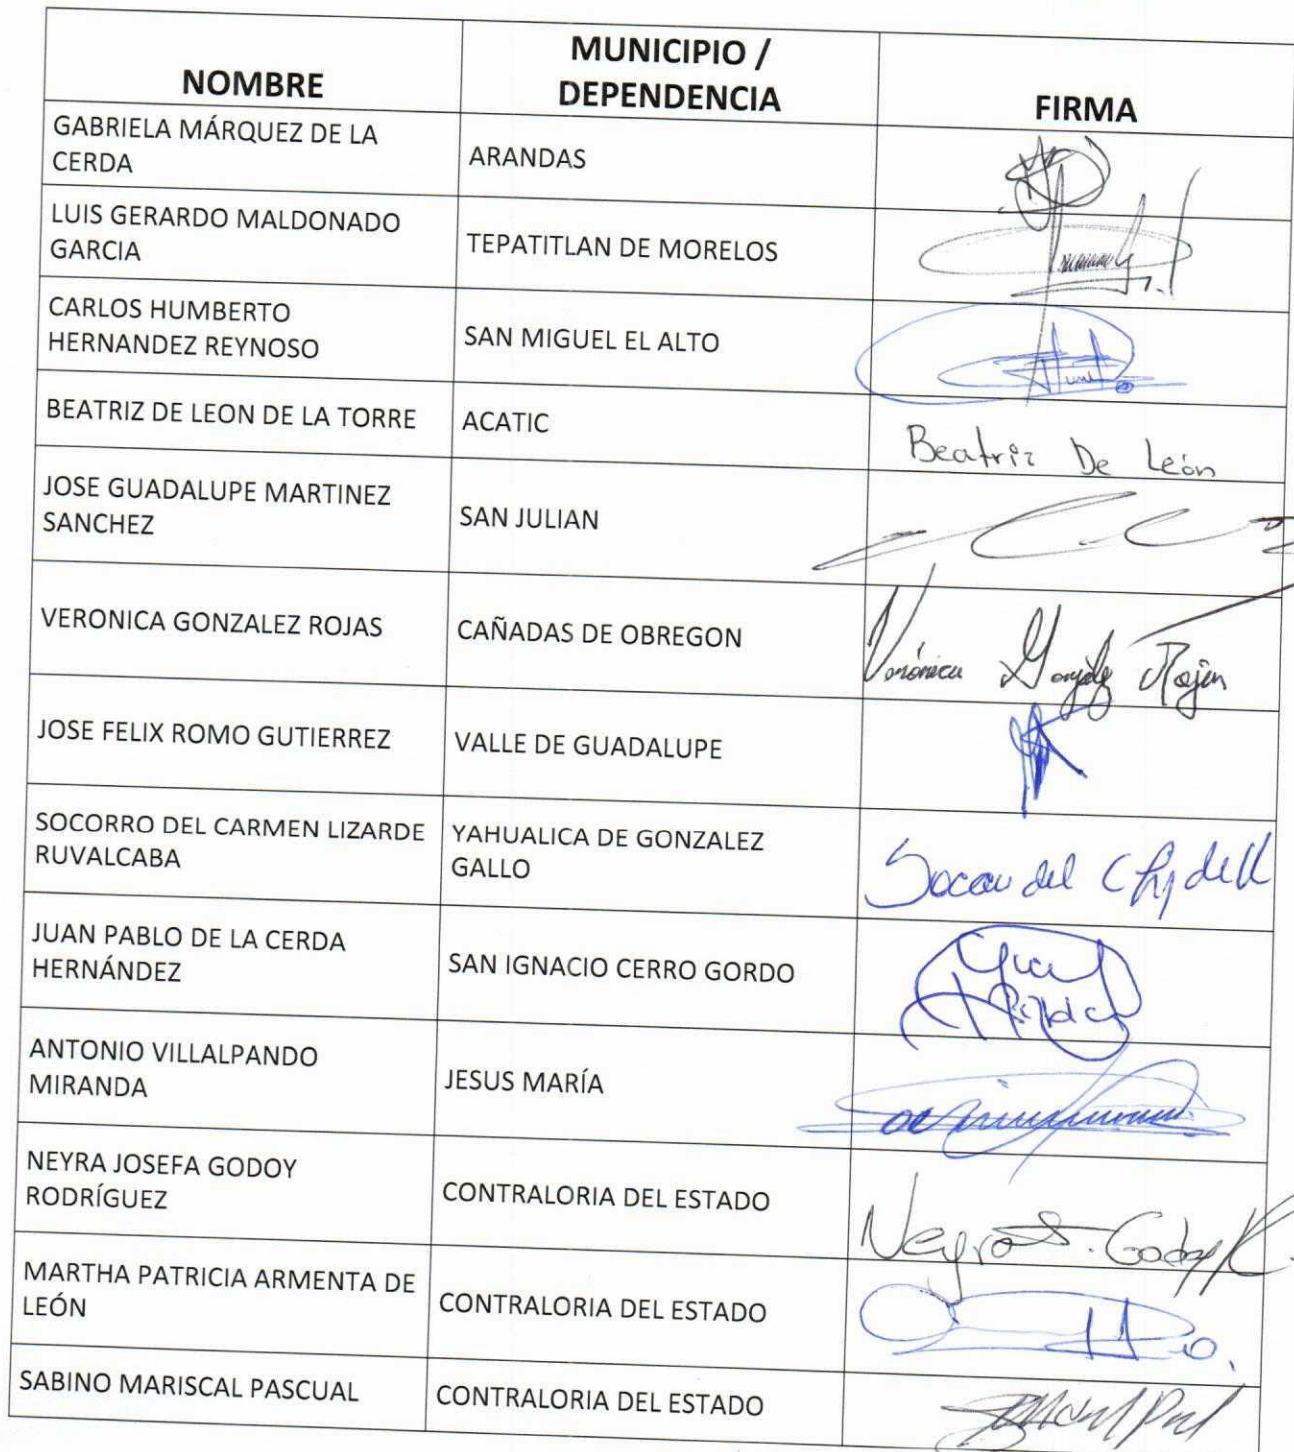 NOMBRE
MUNICIPIO /
DEPENDENCIA
FIRMA
GABRIELA MÁRQUEZ DE LA
CERDA
ARANDAS
LUIS GERARDO MALDONADO
GARCIA
TEPATITLAN DE MORELOS
CARLOS HUMBERTO
HERNANDEZ REYNOSO
SAN MIGUEL EL ALTO
BEATRIZ DE LEON DE LA TORRE
ACATIC
Beatriz De León
JOSE GUADALUPE MARTINEZ
SANCHEZ
SAN JULIAN
VERONICA GONZALEZ ROJAS
CAÑADAS DE OBREGON
Verónica González Rojas
JOSE FELIX ROMO GUTIERREZ
VALLE DE GUADALUPE
SOCORRO DEL CARMEN LIZARDE
RUVALCABA
YAHUALICA DE GONZALEZ
GALLO
del C
JUAN PABLO DE LA CERDA
HERNÁNDEZ
SAN IGNACIO CERRO GORDO
ANTONIO VILLALPANDO
MIRANDA
JESUS MARÍA
NEYRA JOSEFA GODOY
RODRÍGUEZ
CONTRALORIA DEL ESTADO
Neyra J. Godoy R.
MARTHA PATRICIA ARMENTA DE
LEÓN
CONTRALORIA DEL ESTADO
SABINO MARISCAL PASCUAL
CONTRALORIA DEL ESTADO